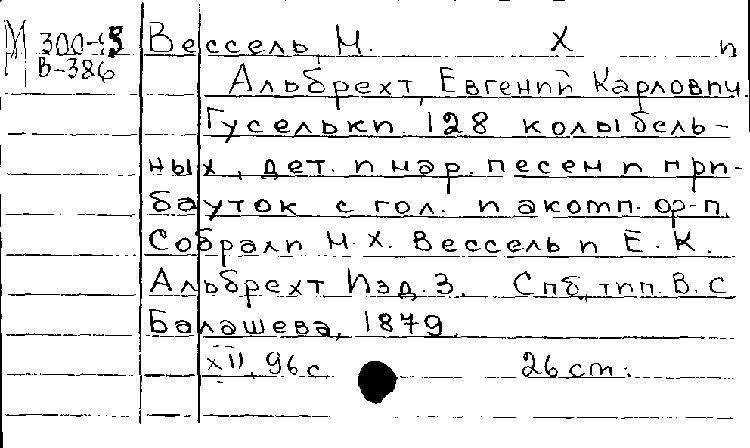 М 300-43 Вессель, М. Х и
В-386
Альбрехт, Евгений Карлович.
Гуселькии 128 колыбель-
ных, дет. и нар. песен и при-
бауток с гол. и акомп. ф-п.
Собрали Н. Х. Вессель и Е. К.
Альбрехт Изд. 3. Спб, тип. В. С
Балашева, 1879.
XII, 96 с 26 cm.